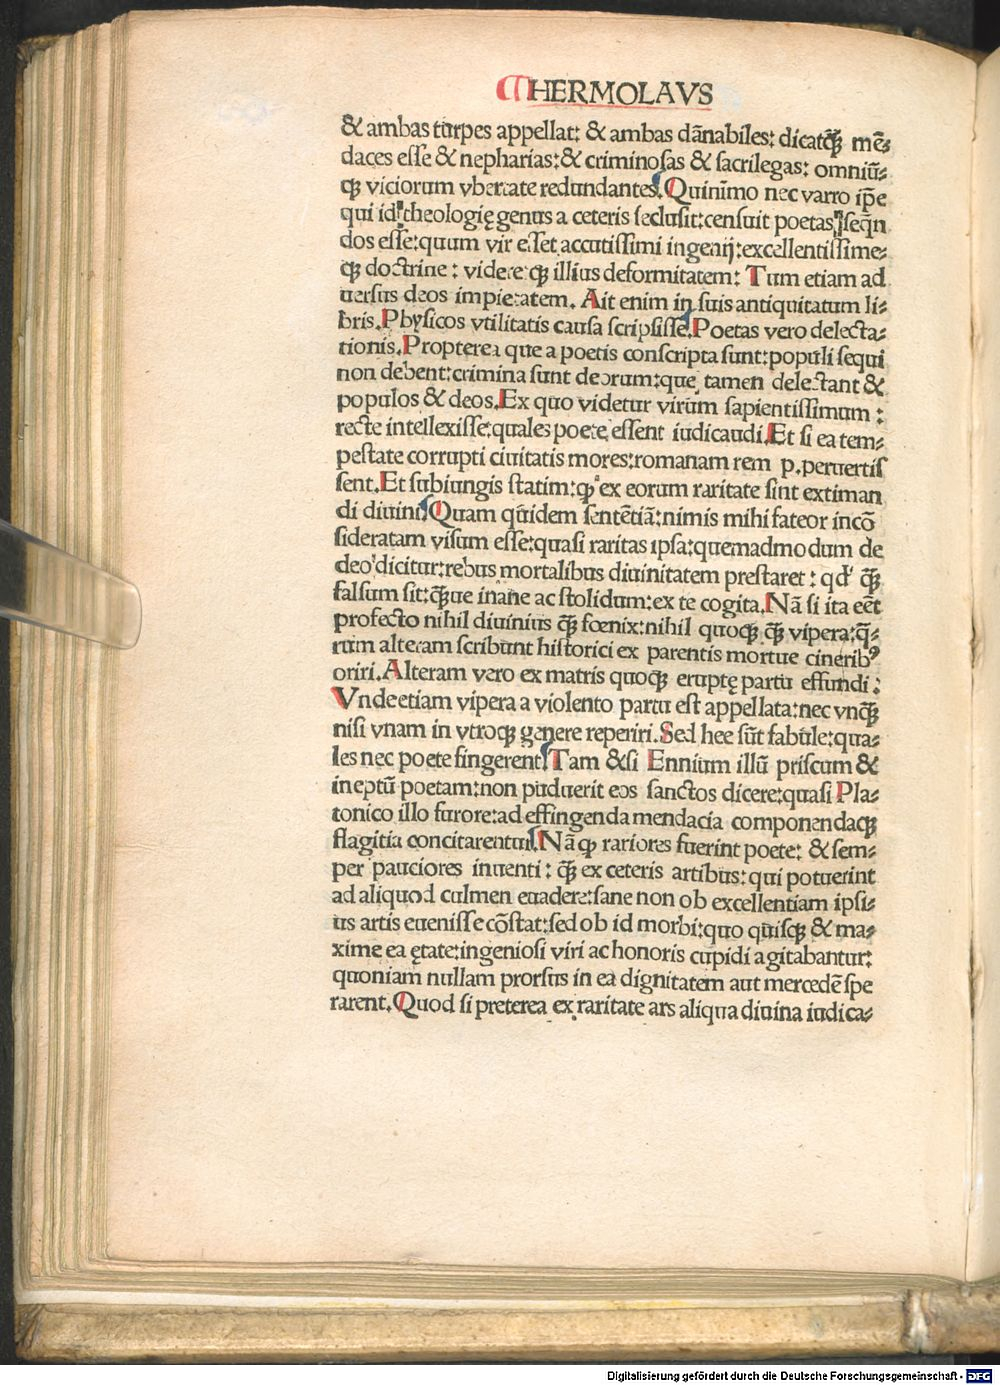 HERMOLAVS
& ambas turpes appellat: & ambas dānabiles: dicatꝙ̄ mē⸗
daces esse & nepharias:& criminosas & sacrilegas: omniū⸗
ꝙ viciorum vbertate redundantes. Quinīmo nec varro ip̄e
qui id theologię genus a ceteris seclusit:censuit poetas seqn̄
dos esse:quum vir esset accutissimi ingenij:excellentissime⸗
ꝙ doctrine: videre ꝙ illius deformitatem: Tum etiam ad
uersus deos impietatem. Ait enim in suis antiquitatum li⸗
bris. Physicos vtilitatis causa scripsisse. Poetas vero delecta⸗
tionis. Propterea que a poetis conscripta sunt: populi sequi
non debent:crimina sunt deorum:que tamen delectant &
populos & deos. Ex quo videtur virum sapientissimum:
recte intellexisse:quales poete essent iudicaudi. Et si ea tem⸗
pestate corrupti ciuitatis mores:romanam rem p. peruertis
sent. Et subiungis statim: ꝙ ex eorum raritate sint extiman
di diuini. Quam quidem sentētiā: nimis mihi fateor incō
sideratam visum esse:quasi raritas ipsa:quemadmodum de
deo dicitur:rebus mortalibus diuinitatem prestaret: qd' ꝙ̄
falsum sit:ꝙ̄ue inane ac stolidum:ex te cogita. Nā si ita eēt
profecto nihil diuinius ꝙ̄ fœnix:nihil quoꝙ ꝙ̄ vipera:q̄⸗
rum alteram scribunt historici ex parentis mortue cineribꝰ
oriri. Alteram vero ex matris quoꝙ eruptę partu effundi:
Vnde etiam vipera a violento partu est appellata:nec vnꝙ̄
nisi vnam in vtroꝙ genere reperiri. Sed hee sūt fabule:qua⸗
les nec poete fingerent. Tam & si Ennium illū priscum &
ineptū poetam:non puduerit eos sanctos dicere:quasi Pla⸗
tonico illo furore:ad effingenda mendacia componendaꝙ
flagitia concitarentur. Nā ꝙ rariores fuerint poete: & sem⸗
per pauciores inuenti: ꝙ̄ ex ceteris artibus: qui potuerint
ad aliquod culmen euadere:sane non ob excellentiam ipsi⸗
us artis euenisse cōstat:sed ob id morbi:quo quisꝙ & ma⸗
xime ea ętate:ingeniosi viri ac honoris cupidi agitabantur:
quoniam nullam prorsus in ea dignitatem aut mercedē spe
rarent. Quod si preterea ex raritate ars aliqua diuina iudica⸗
Digitalisierung gefördert durch die Deutsche Forschungsgemeinschaft - DFG